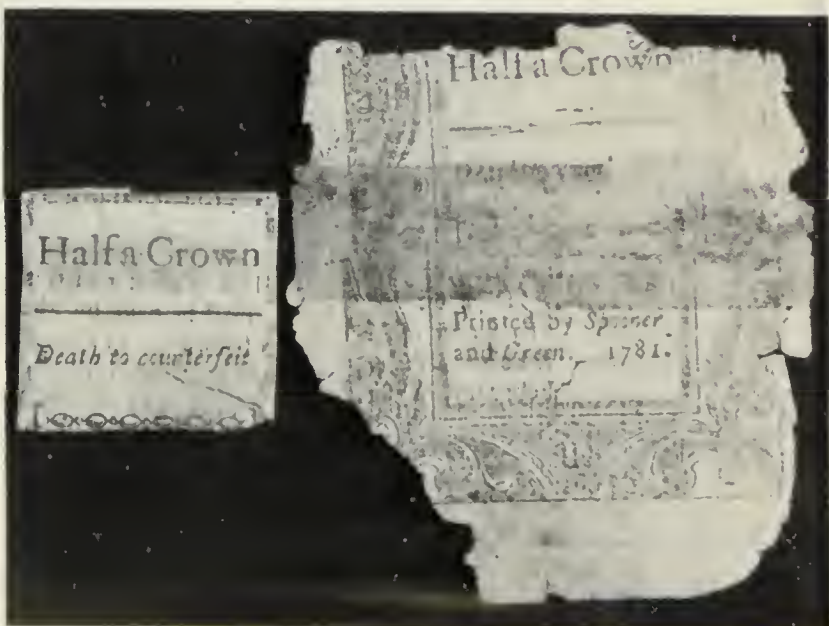 Half a Crown
Death to counterfeit
Half a Crown
Printed by Spooner
and Green. 1781.